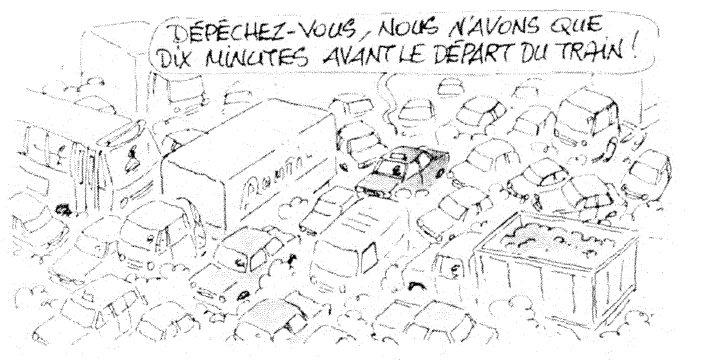 DÉPÊCHEZ-VOUS, NOUS N'AVONS QUE
DIX MINUTES AVANT LE DÉPART DU TRAIN !